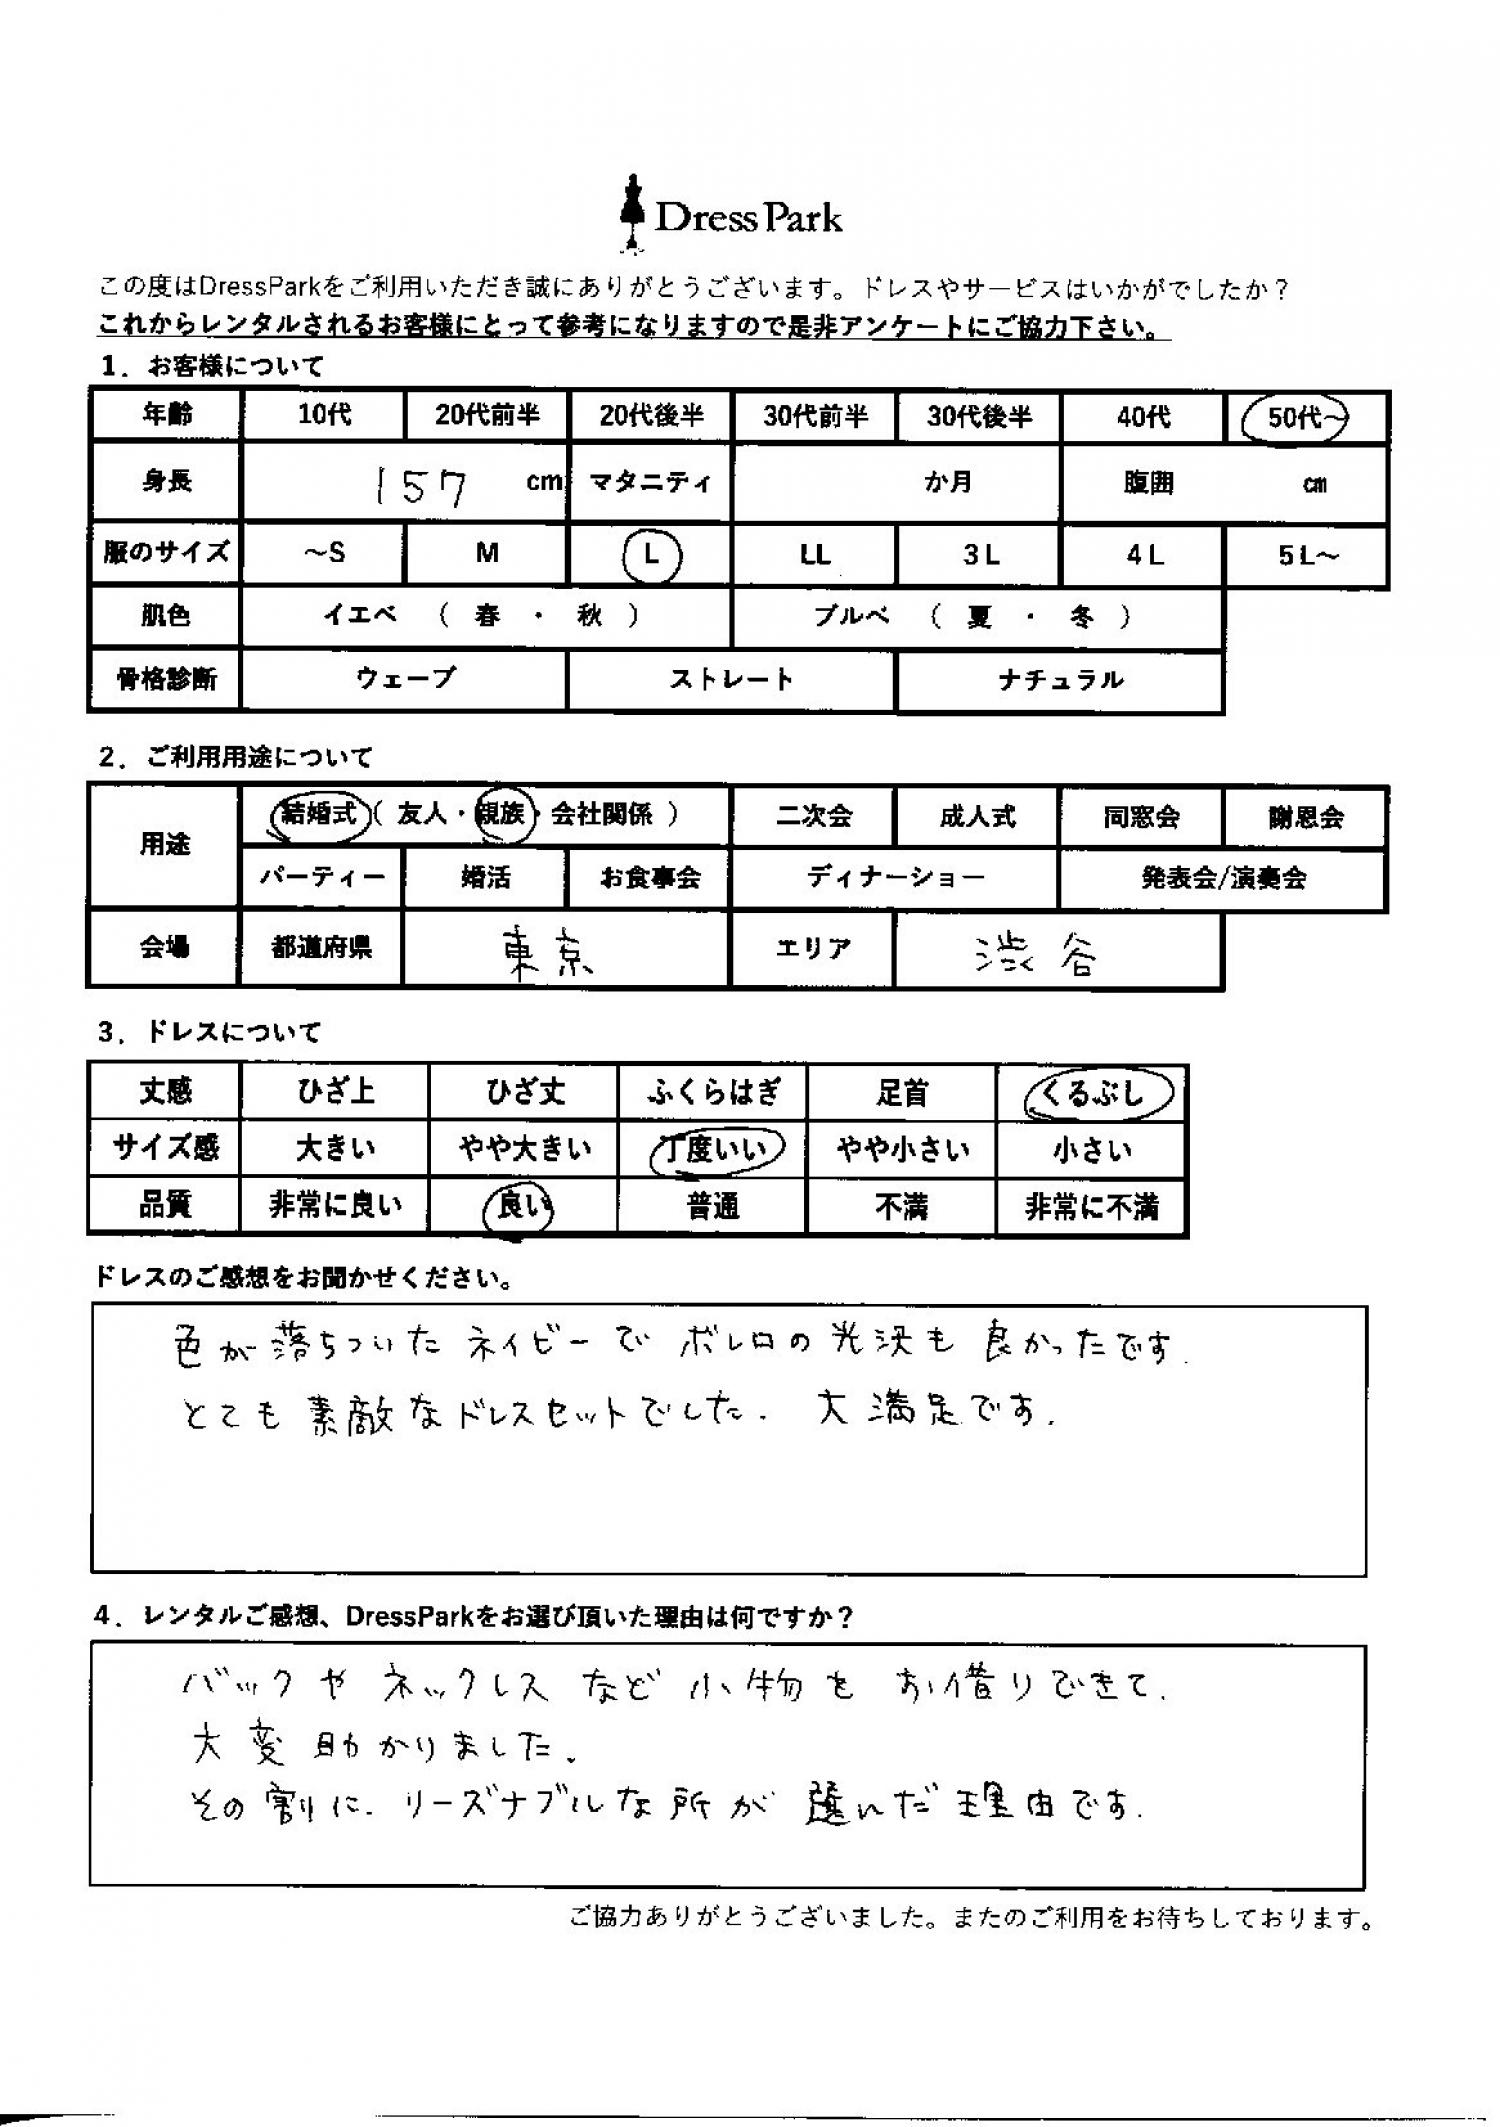 Dress Park
この度はDressParkをご利用いただき誠にありがとうございます。ドレスやサービスはいかがでしたか？
これからレンタルされるお客様にとって参考になりますので是非アンケートにご協力下さい。
1．お客様について
年齢 10代 20代前半 20代後半 30代前半 30代後半 40代 50代～
身長 157 cm マタニティ か月 腹囲 cm
服のサイズ ～S M L LL 3L 4L 5L～
肌色 イエベ （ 春 ・ 秋 ） ブルベ （ 夏 ・ 冬 ）
骨格診断 ウェーブ ストレート ナチュラル
2．ご利用用途について
用途 結婚式（ 友人・親族・会社関係 ） 二次会 成人式 同窓会 謝恩会
パーティー 婚活 お食事会 ディナーショー 発表会/演奏会
会場 都道府県 東京 エリア 渋谷
3．ドレスについて
丈感 ひざ上 ひざ丈 ふくらはぎ 足首 くるぶし
サイズ感 大きい やや大きい 丁度いい やや小さい 小さい
品質 非常に良い 良い 普通 不満 非常に不満
ドレスのご感想をお聞かせください。
色が落ちついたネイビーでボレロの光沢も良かったです.
とても素敵なドレスセットでした. 大満足です.
4．レンタルご感想、DressParkをお選び頂いた理由は何ですか？
バックやネックレスなど小物もお借りできて.
大変助かりました.
その割に. リーズナブルな所が選んだ理由です.
ご協力ありがとうございました。またのご利用をお待ちしております。